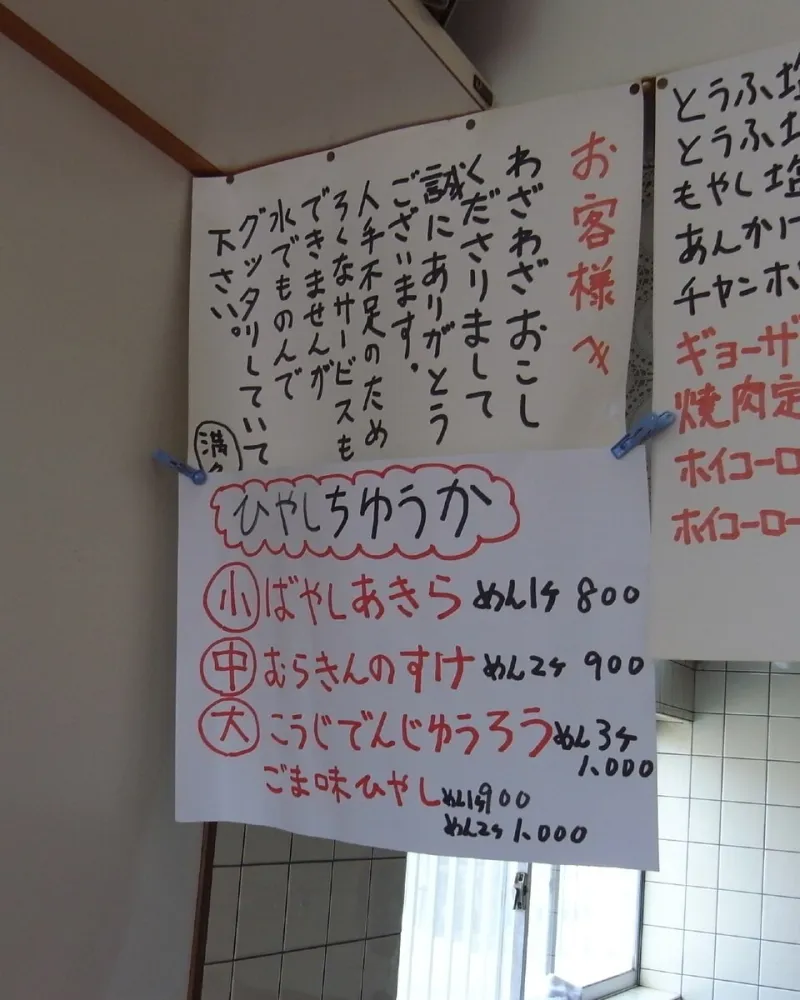 お客様へ
わざわざおこし
くださりまして
誠にありがとう
ございます。
人手不足のため
ろくなサービスも
できませんが
水でものんで
グッタリしていて
下さい。
満
ひやしちゆうか
小 ばやしあきら めん1ケ 800
中 むらきんのすけ めん2ケ 900
大 こうじでんじゆうろう めん3ケ 1.000
ごま味ひやし めん1ケ 900
めん2ケ 1.000
とうふ塩
とうふ塩
もやし塩
あんかけ
チャンポ
ギョーザ
焼肉定
ホイコーロ
ホイコーロー